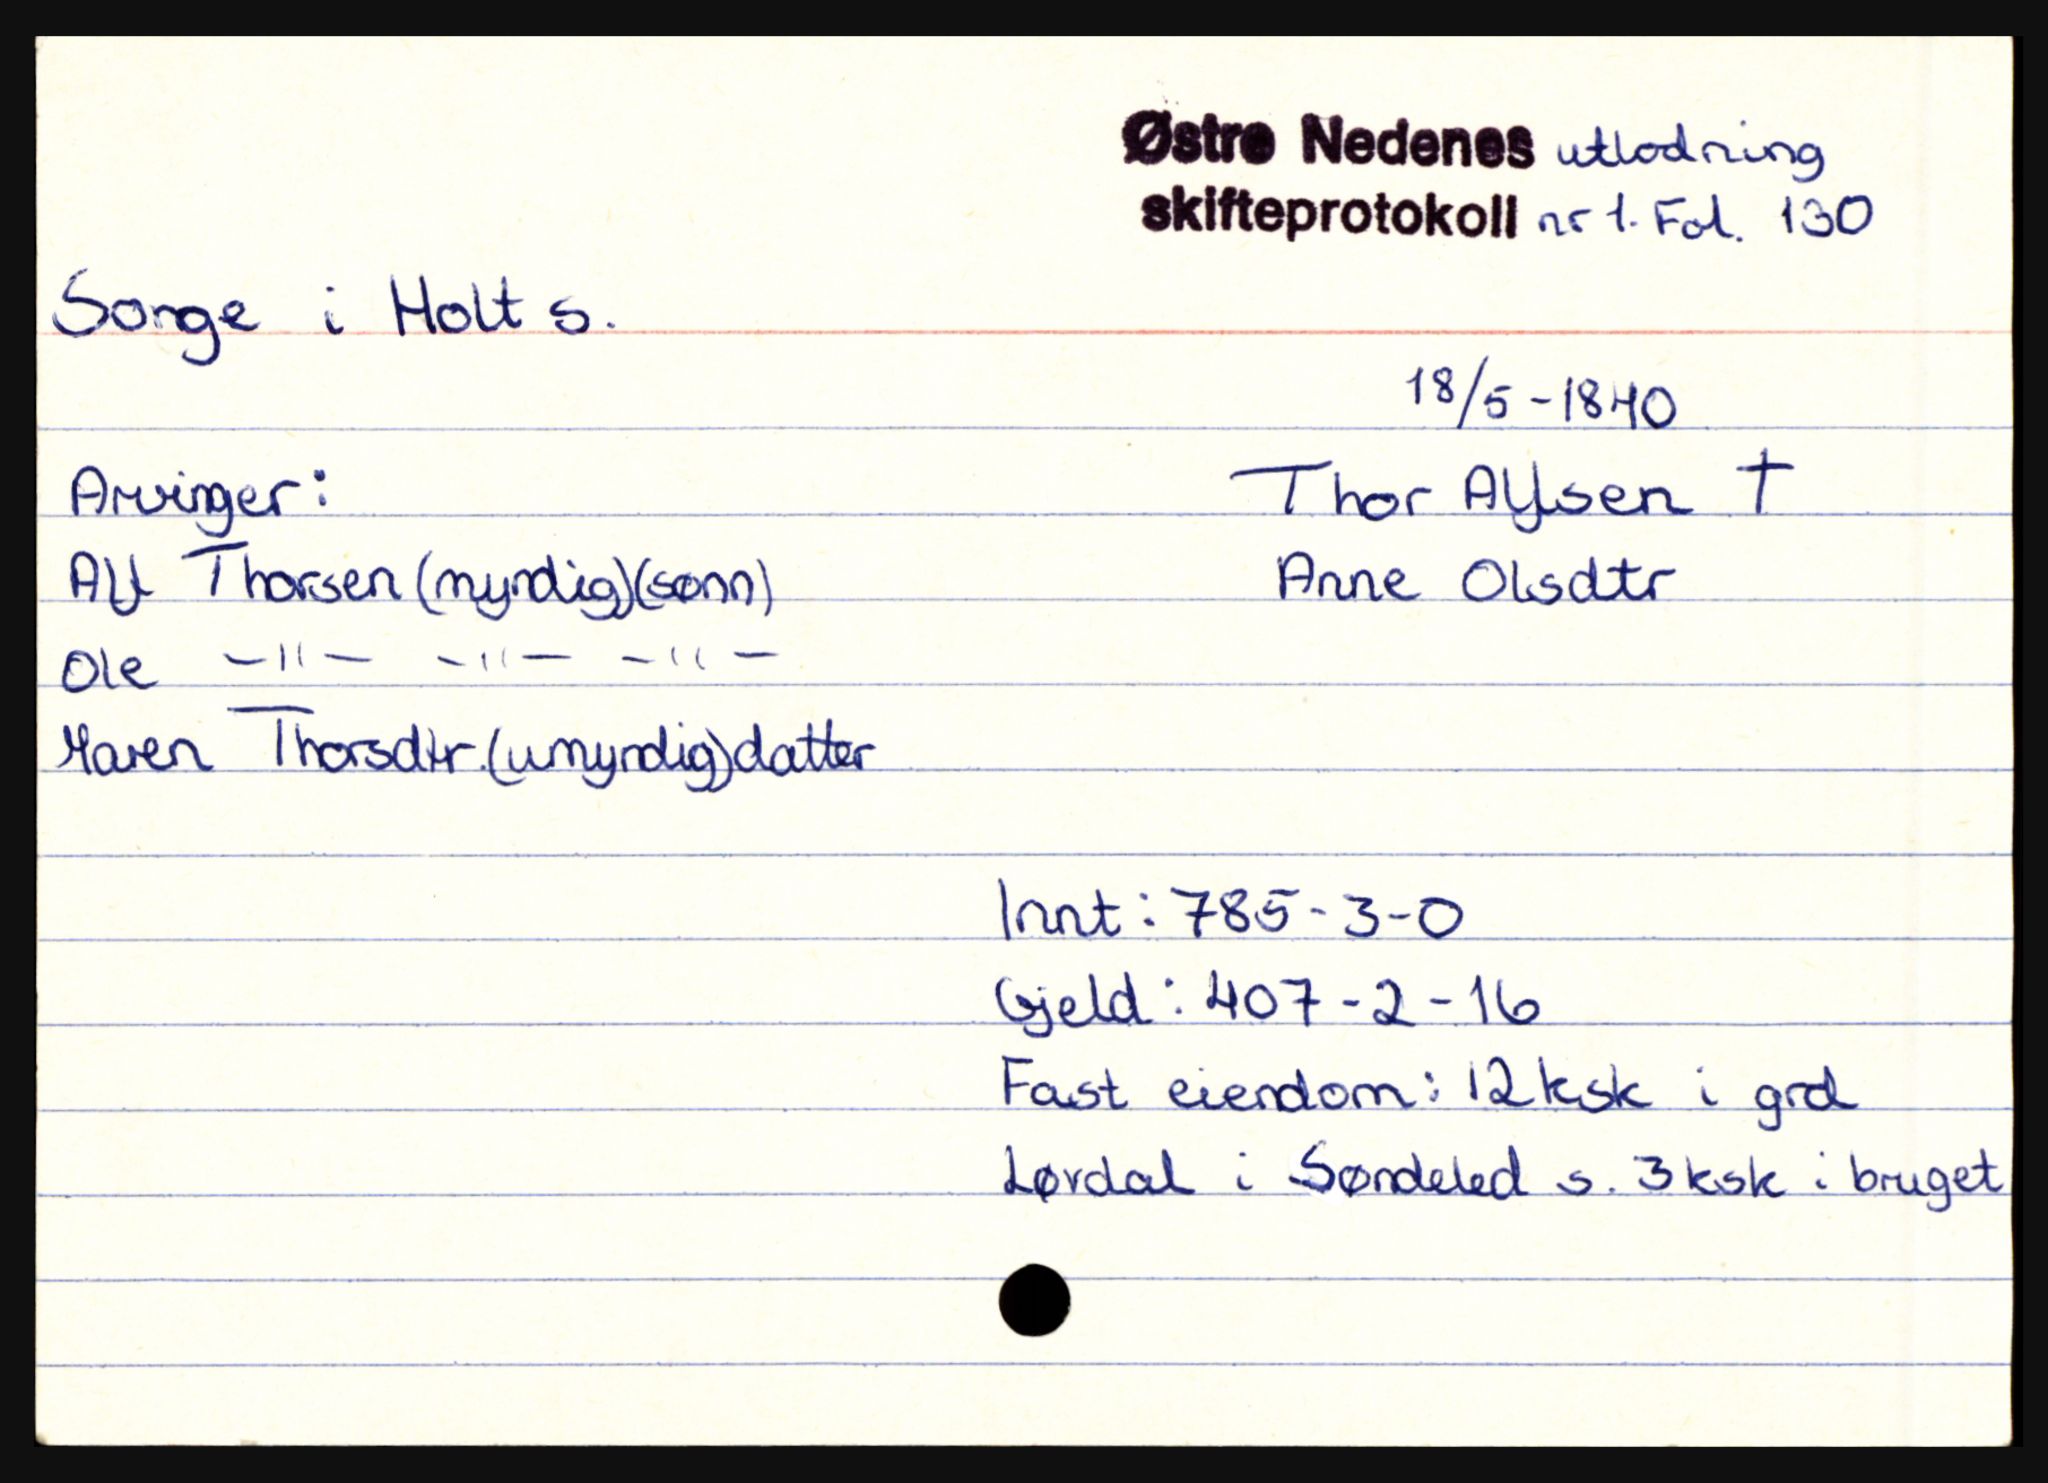 Østre Nedenes utlodning
skifteprotokoll nr 1. Fol. 130
Songe i Holt s.
18/5-1840
Arvinger: Thor Alfsen †
Alf Thorsen (myndig)(sønn) Anne Olsdtr
Ole -"- -"- -"-
Maren Thorsdtr. (umyndig) datter
Innt: 785-3-0
Gjeld: 407-2-16
Fast eiendom: 12 ksk i grd
Løvdal i Søndeled s. 3 ksk i bruget